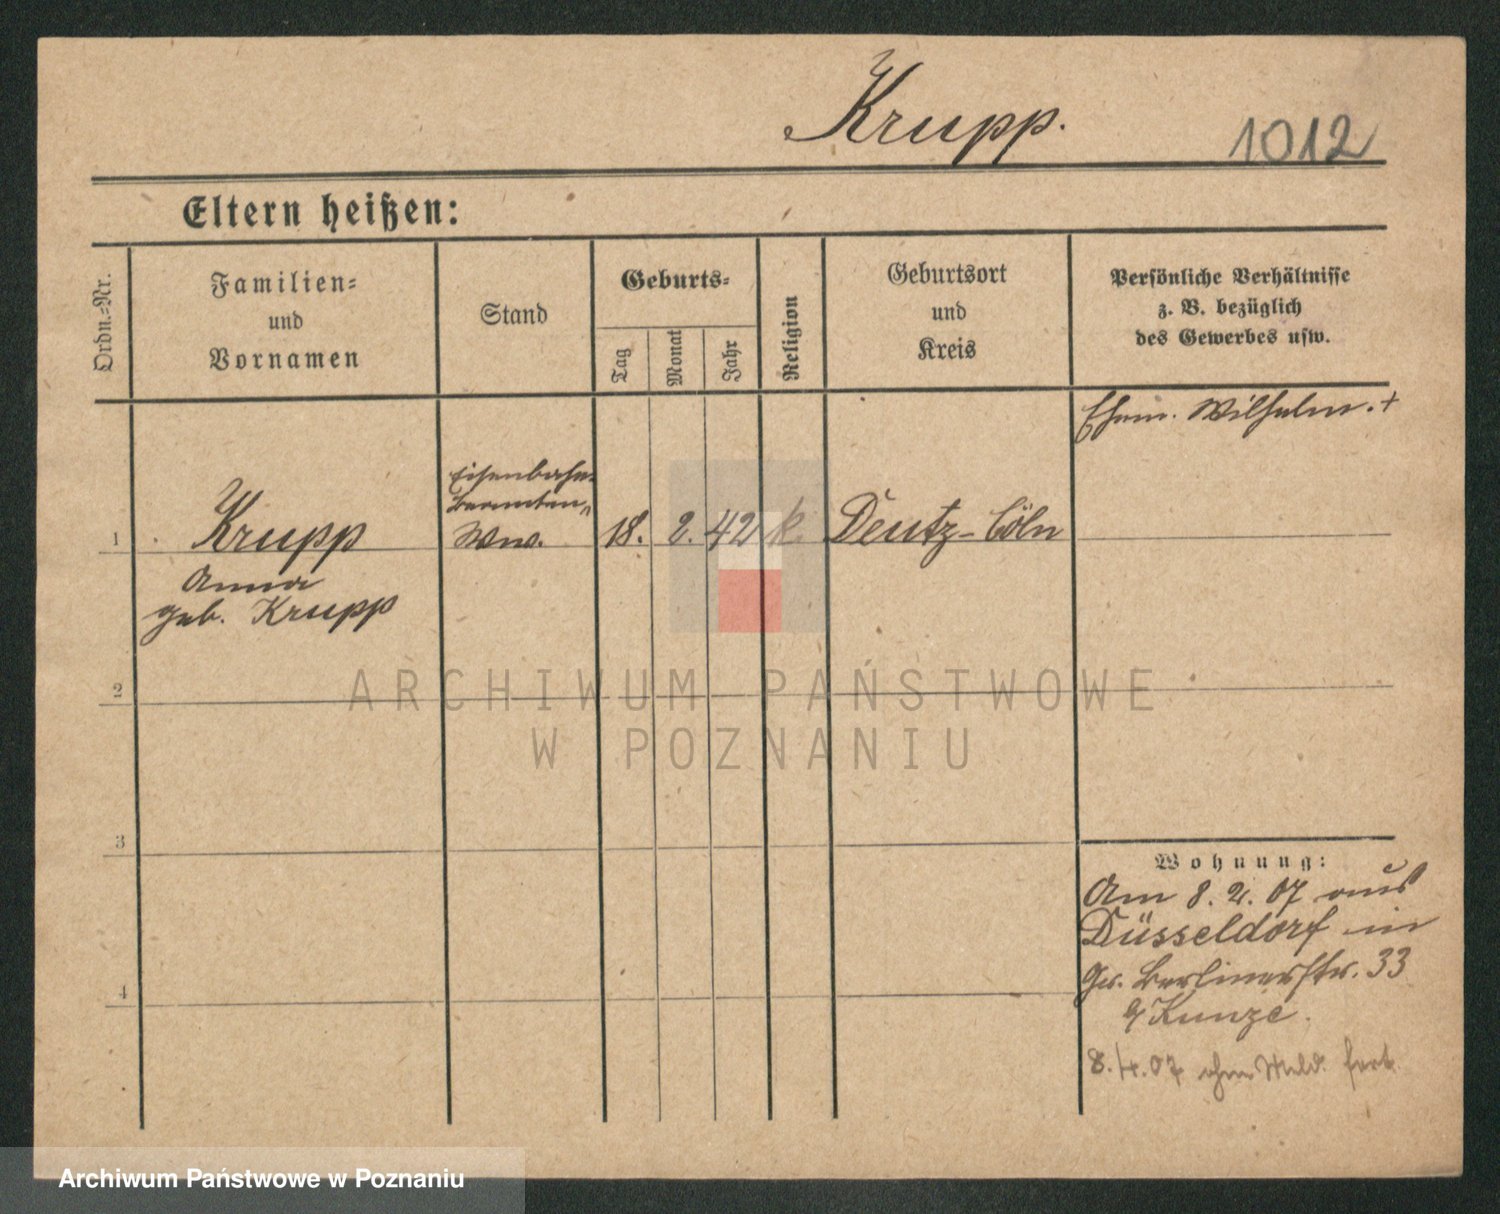 Krupp.
1012
Eltern heißen:
Ordn.=Nr.
Familien=
und
Vornamen
Stand
Geburts=
Tag
Monat
Jahr
Religion
Geburtsort
und
Kreis
Persönliche Verhältnisse
z. B. bezüglich
des Gewerbes usw.
Ehem. Wilhelm. +
1
Krupp
Anna
geb. Krupp
Eisenbahn=
Beamten=
Ww.
18. 2. 42
k.
Deutz-Cöln
2
3
4
Wohnung:
Am 8. 2. 07 aus
Düsseldorf in
Gr. Berlinerstr. 33
b/Kunze.
8.4.07 ohne Meld. fort.
ARCHIWUM PAŃSTWOWE
W POZNANIU
Archiwum Państwowe w Poznaniu